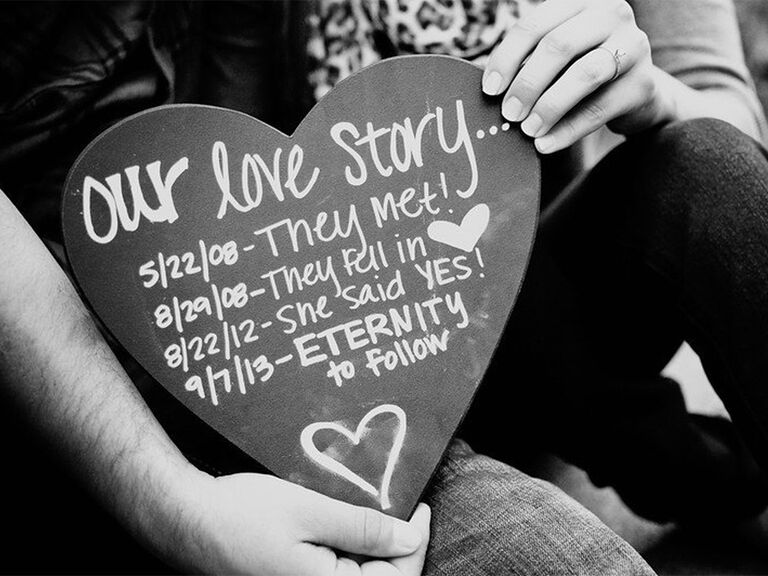 our love story...
5/22/08-They Met!
8/29/08-They fell in
8/22/12-She said YES!
9/7/13-ETERNITY
to Follow